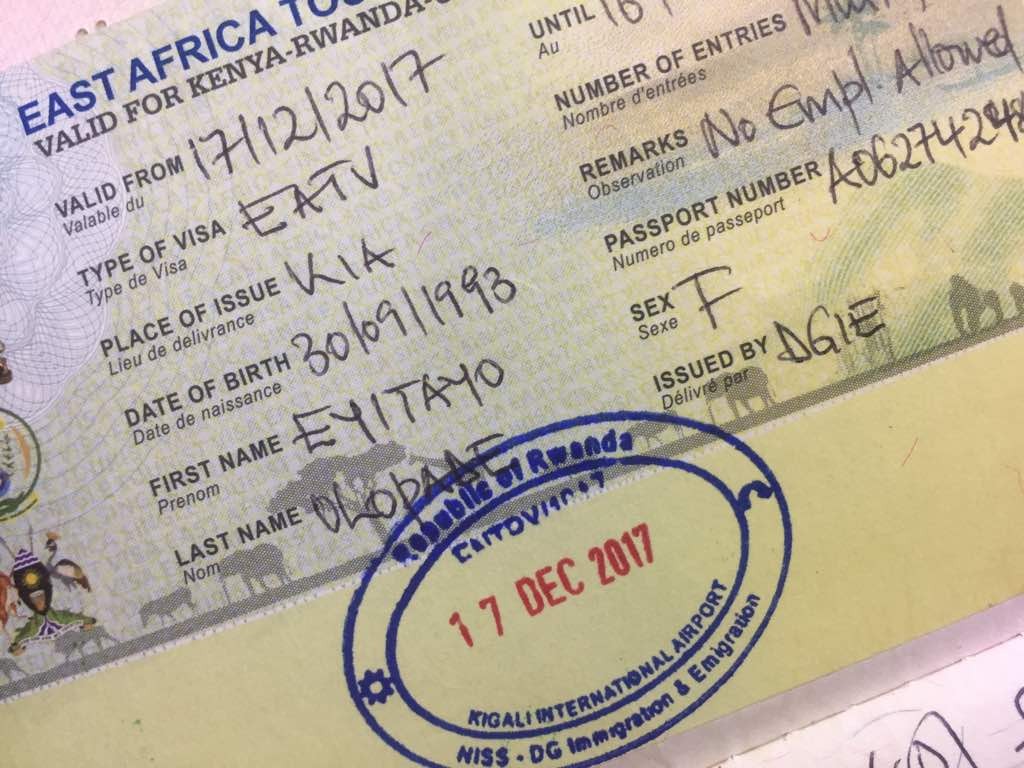 EAST AFRICA
VALID FOR KENYA-RWANDA-
VALID FROM 17/12/2017
Valable du
TYPE OF VISA EATV
Type de Visa
PLACE OF ISSUE KIA
Lieu de délivrance
DATE OF BIRTH 30/09/1993
Date de naissance
FIRST NAME EYITAYO
Prenom
LAST NAME
Nom
UNTIL
Au
NUMBER OF ENTRIES
Nombre d'entrées
REMARKS No Empl. Allowed
Observation
PASSPORT NUMBER
Numero de passeport
SEX F
Sexe
ISSUED BY DGIE
Délivré par
Republic of Rwanda
17 DEC 2017
KIGALI INTERNATIONAL AIRPORT
NISS - DG Immigration & Emigration